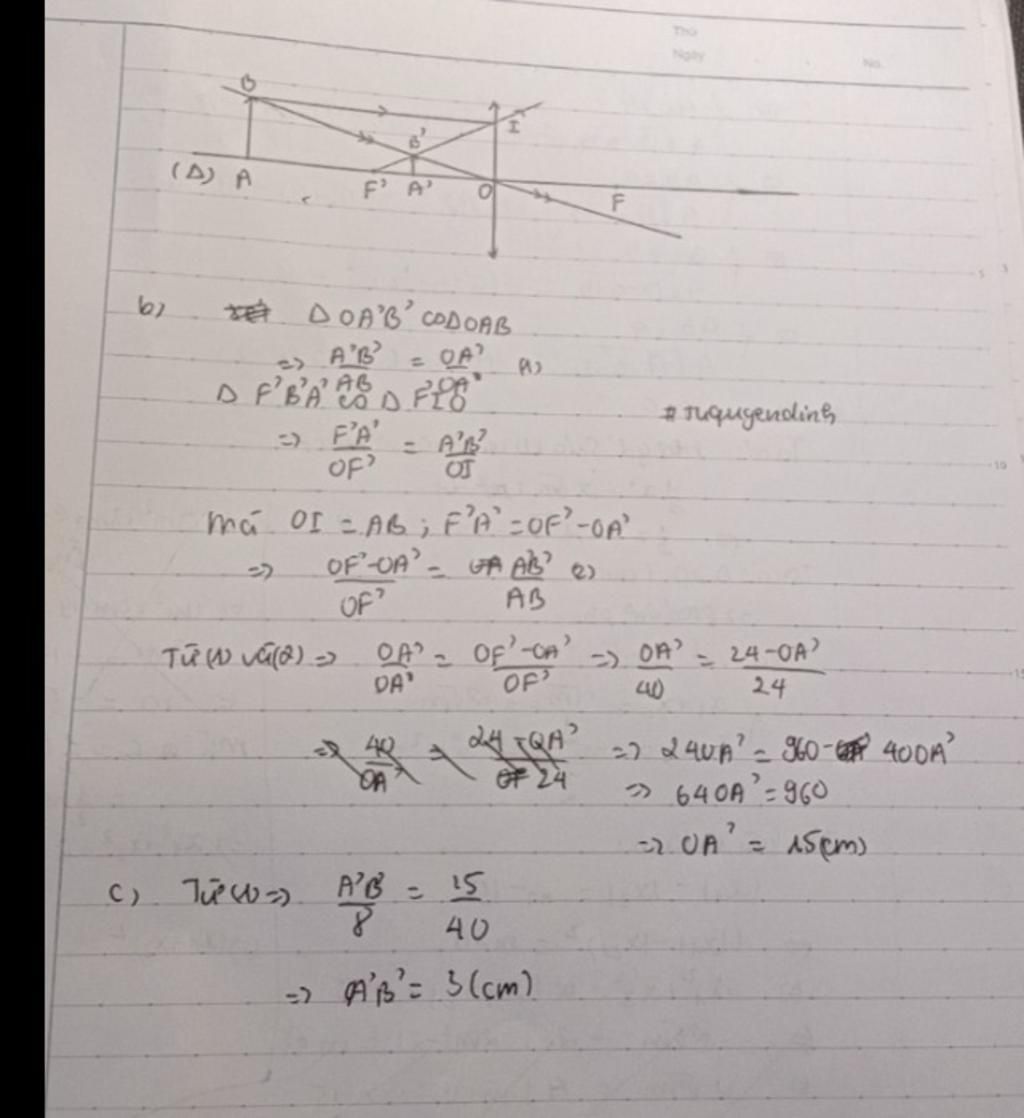 Thứ
Ngày No.
B
I
B'
(Δ) A F' A' O F
b) Δ OA'B' ∽ Δ OAB
=> A'B'/AB = OA'/OA (1)
Δ F'B'A' ∽ Δ F'IO
#tuquyendinh
=> F'A'/OF' = A'B'/OI
mà OI = AB ; F'A' = OF' - OA'
=> OF'-OA'/OF' = A'B'/AB (2)
Từ (1) và (2) => OA'/OA = OF'-OA'/OF' => OA'/40 = 24-OA'/24
=> 40/OA' = 24-OA'/24 => 24OA' = 960 - 40OA'
=> 64OA' = 960
=> OA' = 15(cm)
c) Từ (1) => A'B'/8 = 15/40
=> A'B' = 3(cm)